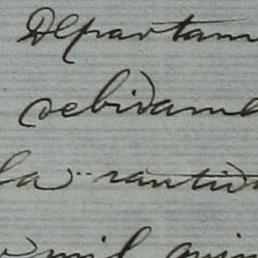 Departam
debidame
la cantida
mil quin